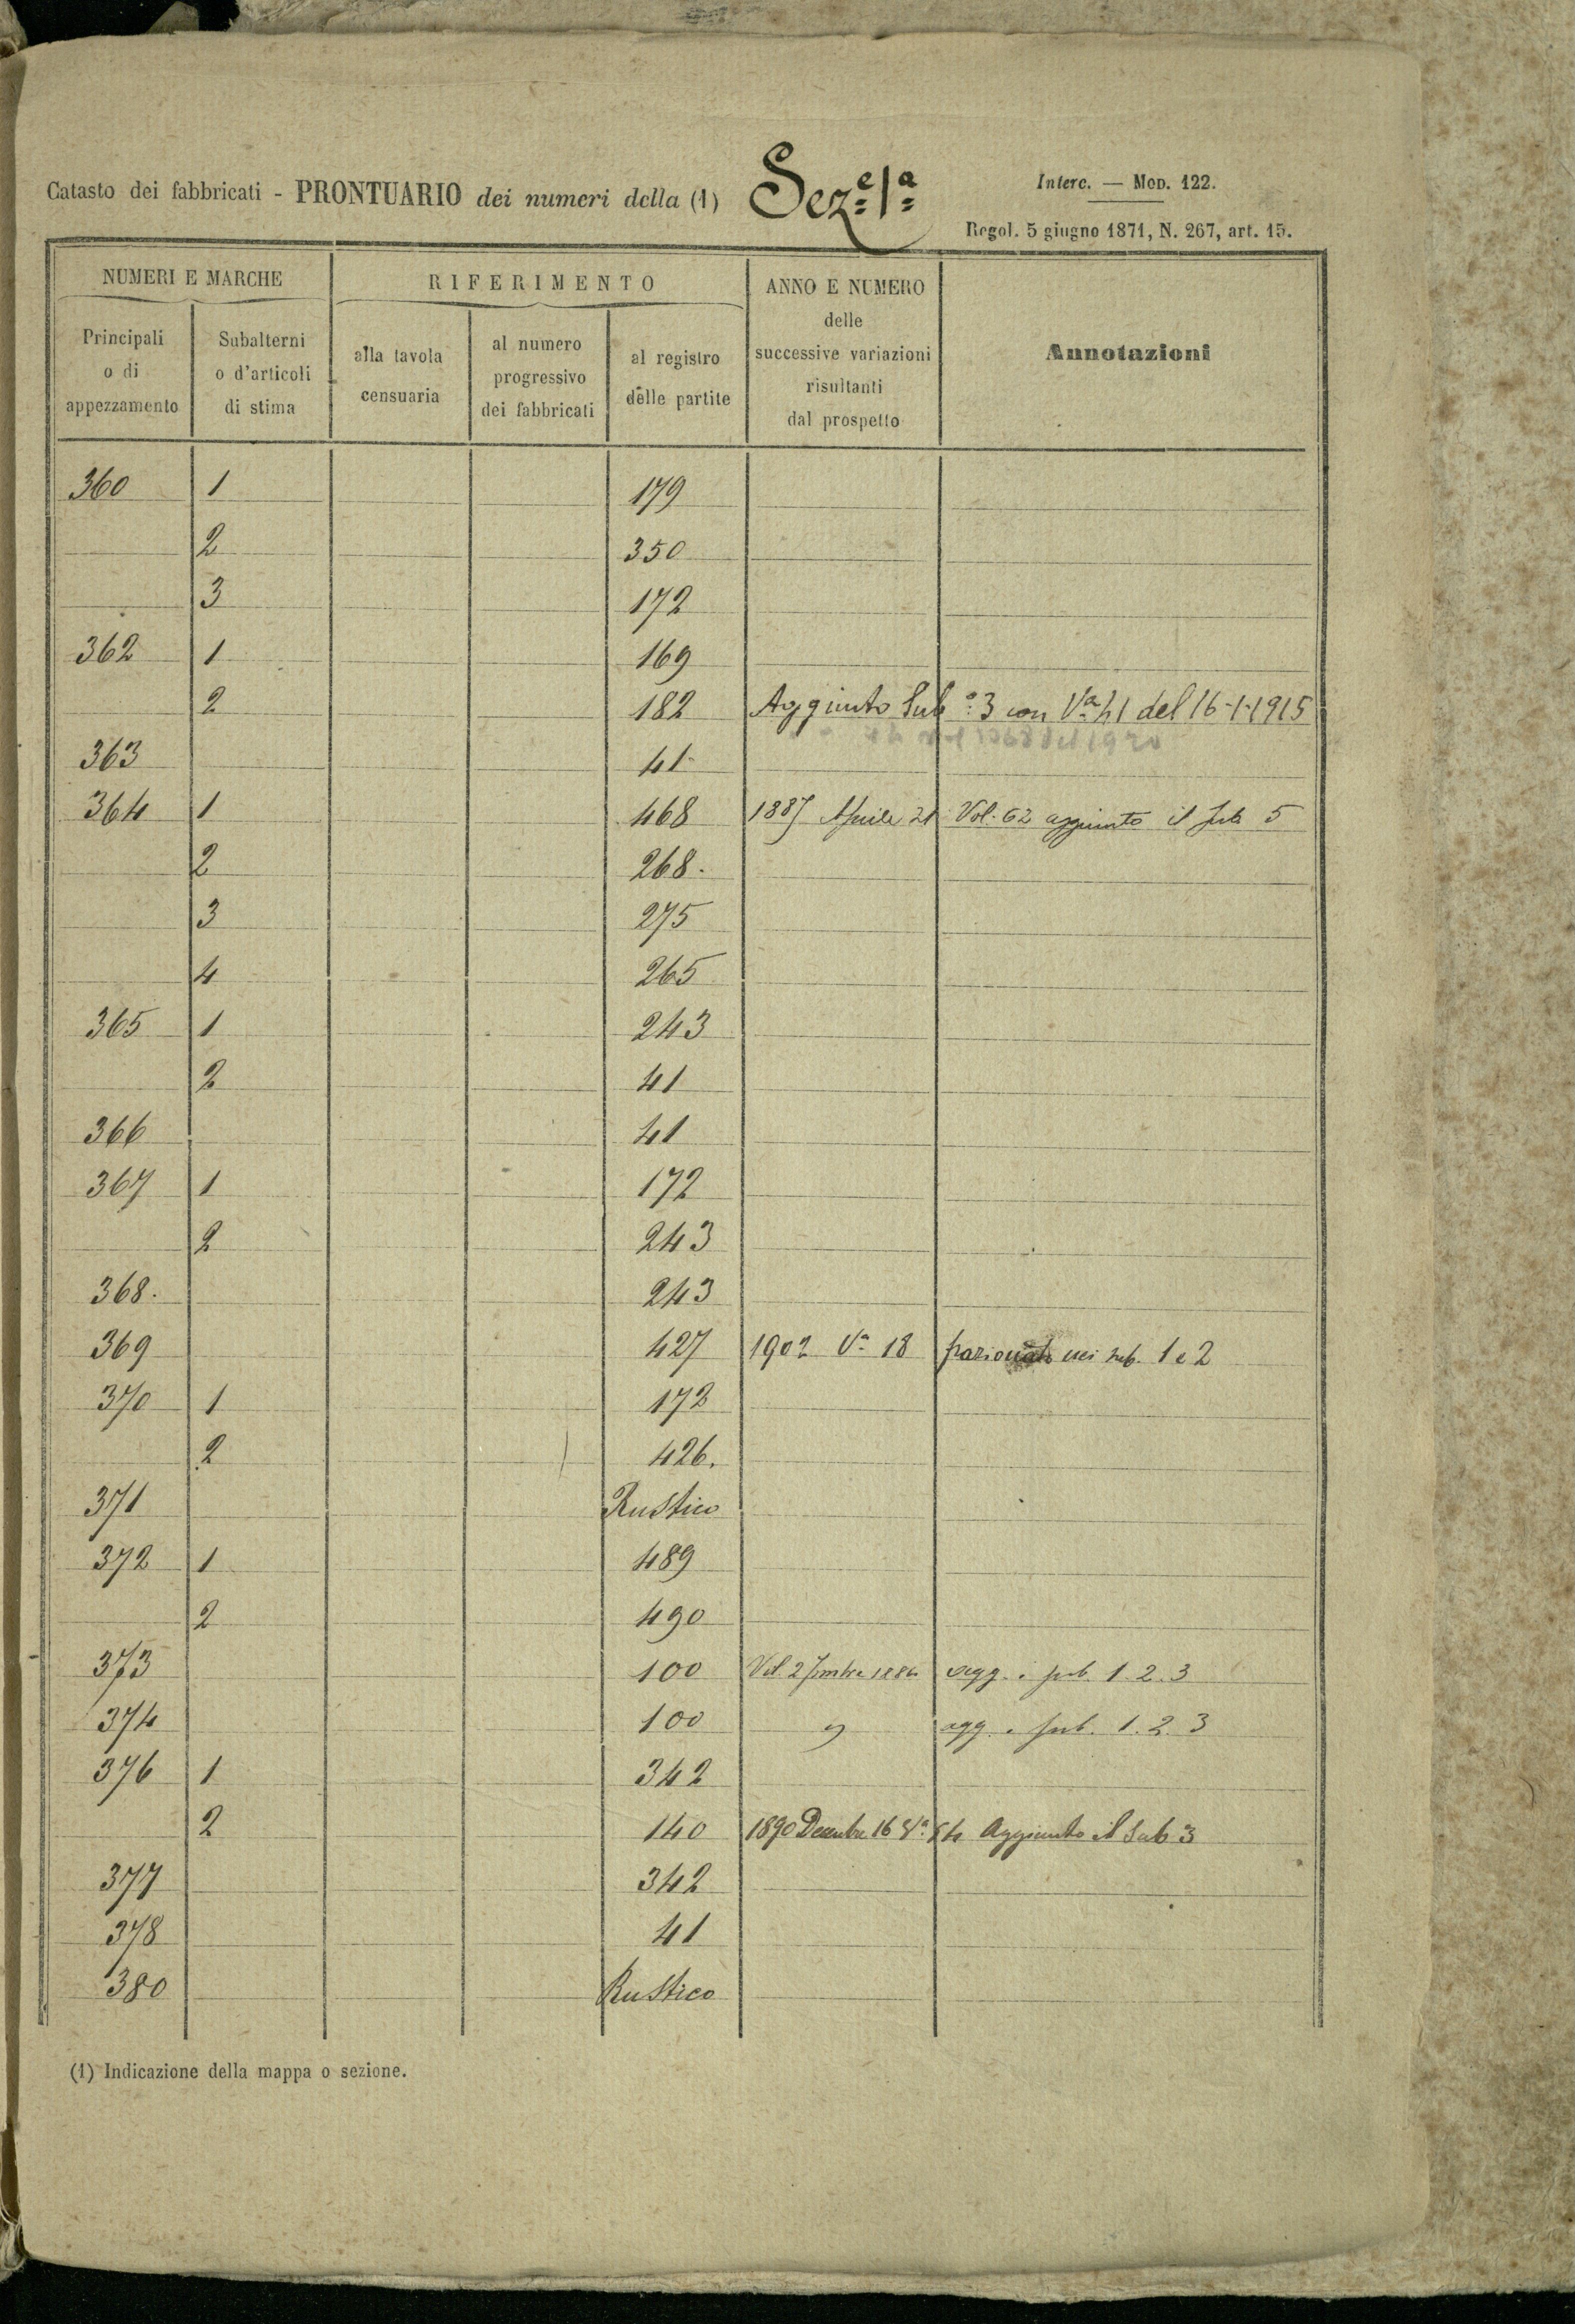 Catasto dei fabbricati - PRONTUARIO dei numeri della (1) Sez.e 1.a
Interc. — Mod. 122.
Regol. 5 giugno 1871, N. 267, art. 15.
NUMERI E MARCHE
Principali o di appezzamento
Subalterni o d'articoli di stima
RIFERIMENTO
alla tavola censuaria
al numero progressivo dei fabbricati
al registro delle partite
ANNO E NUMERO delle successive variazioni risultanti dal prospetto
Annotazioni
360 1 179
2 350
3 172
362 1 169
2 182 Aggiunto Sub.o 3 con V.a 41 del 16-1-1915
363 41
364 1 468 1887 Aprile 21 Vol. 62 aggiunto il sub 5
2 268.
3 275
4 265
365 1 243
2 41
366 41
367 1 172
2 243
368. 243
369 427 1902 V.a 18 frazionato nei sub. 1 e 2
370 1 172
2 426.
371 Rustico
372 1 489
2 490
373 100 Vol. 2 1886 agg. i sub. 1. 2. 3
374 100 " agg. i sub. 1. 2. 3
376 1 342
2 140 1890 Decembre 16 V.a 54 Aggiunto il Sub 3
377 342
378 41
380 Rustico
(1) Indicazione della mappa o sezione.